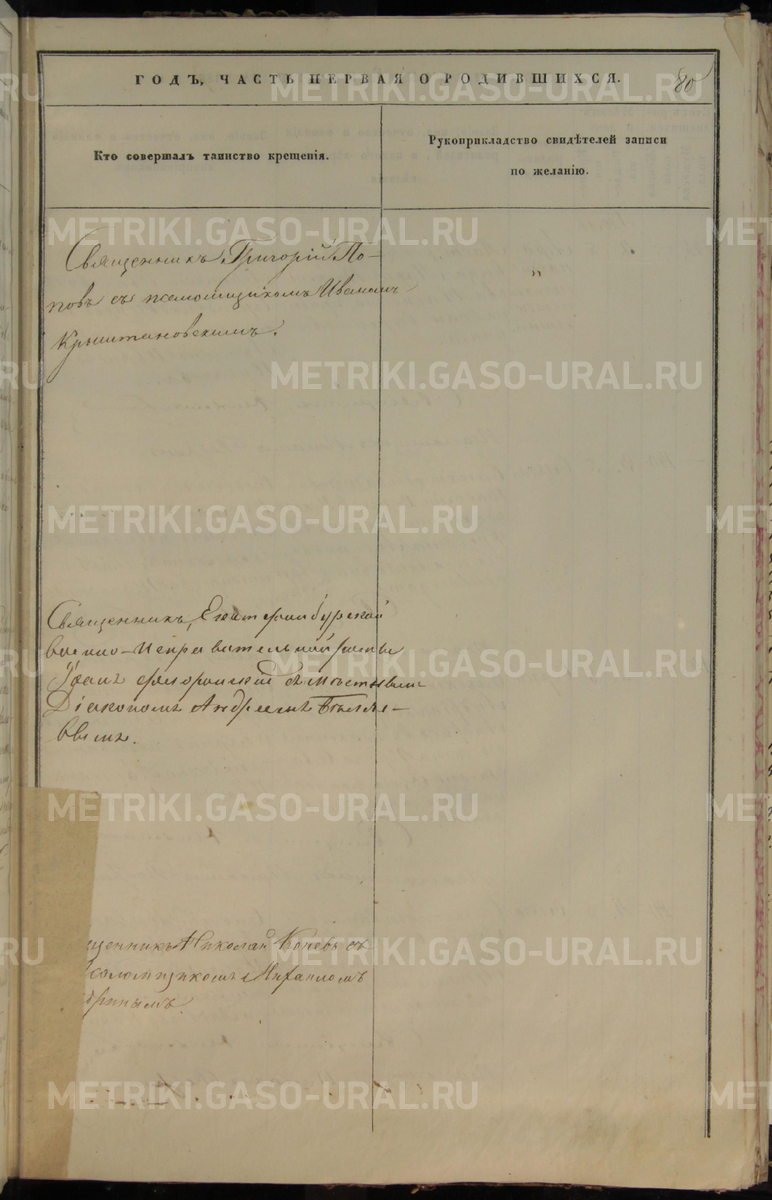 ГОДЪ, ЧАСТЬ ПЕРВАЯ О РОДИВШИХСЯ.
80
Кто совершалъ таинство крещенія.
Рукоприкладство свидѣтелей записи
по желанію.
Священникъ Григорій По-
повъ съ псаломщикомъ Иваномъ
Крыштановскимъ.
"
Священникъ, Екатеринбургской
военно-Исправительной роты
Діакономъ Андреемъ Бѣляе-
вымъ.
щенникъ Николай съ
саломщикомъ Михаиломъ
METRIKI.GASO-URAL.RU